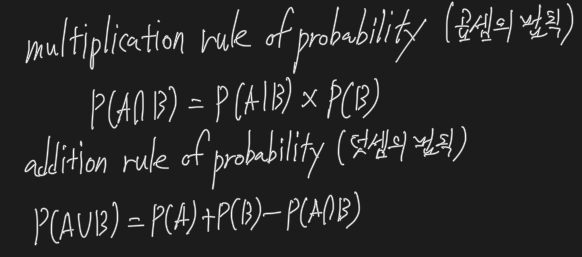 multiplication rule of probability (곱셈의 법칙)
P(A∩B) = P(A|B) × P(B)
addition rule of probability (덧셈의 법칙)
P(A∪B) = P(A)+P(B)-P(A∩B)